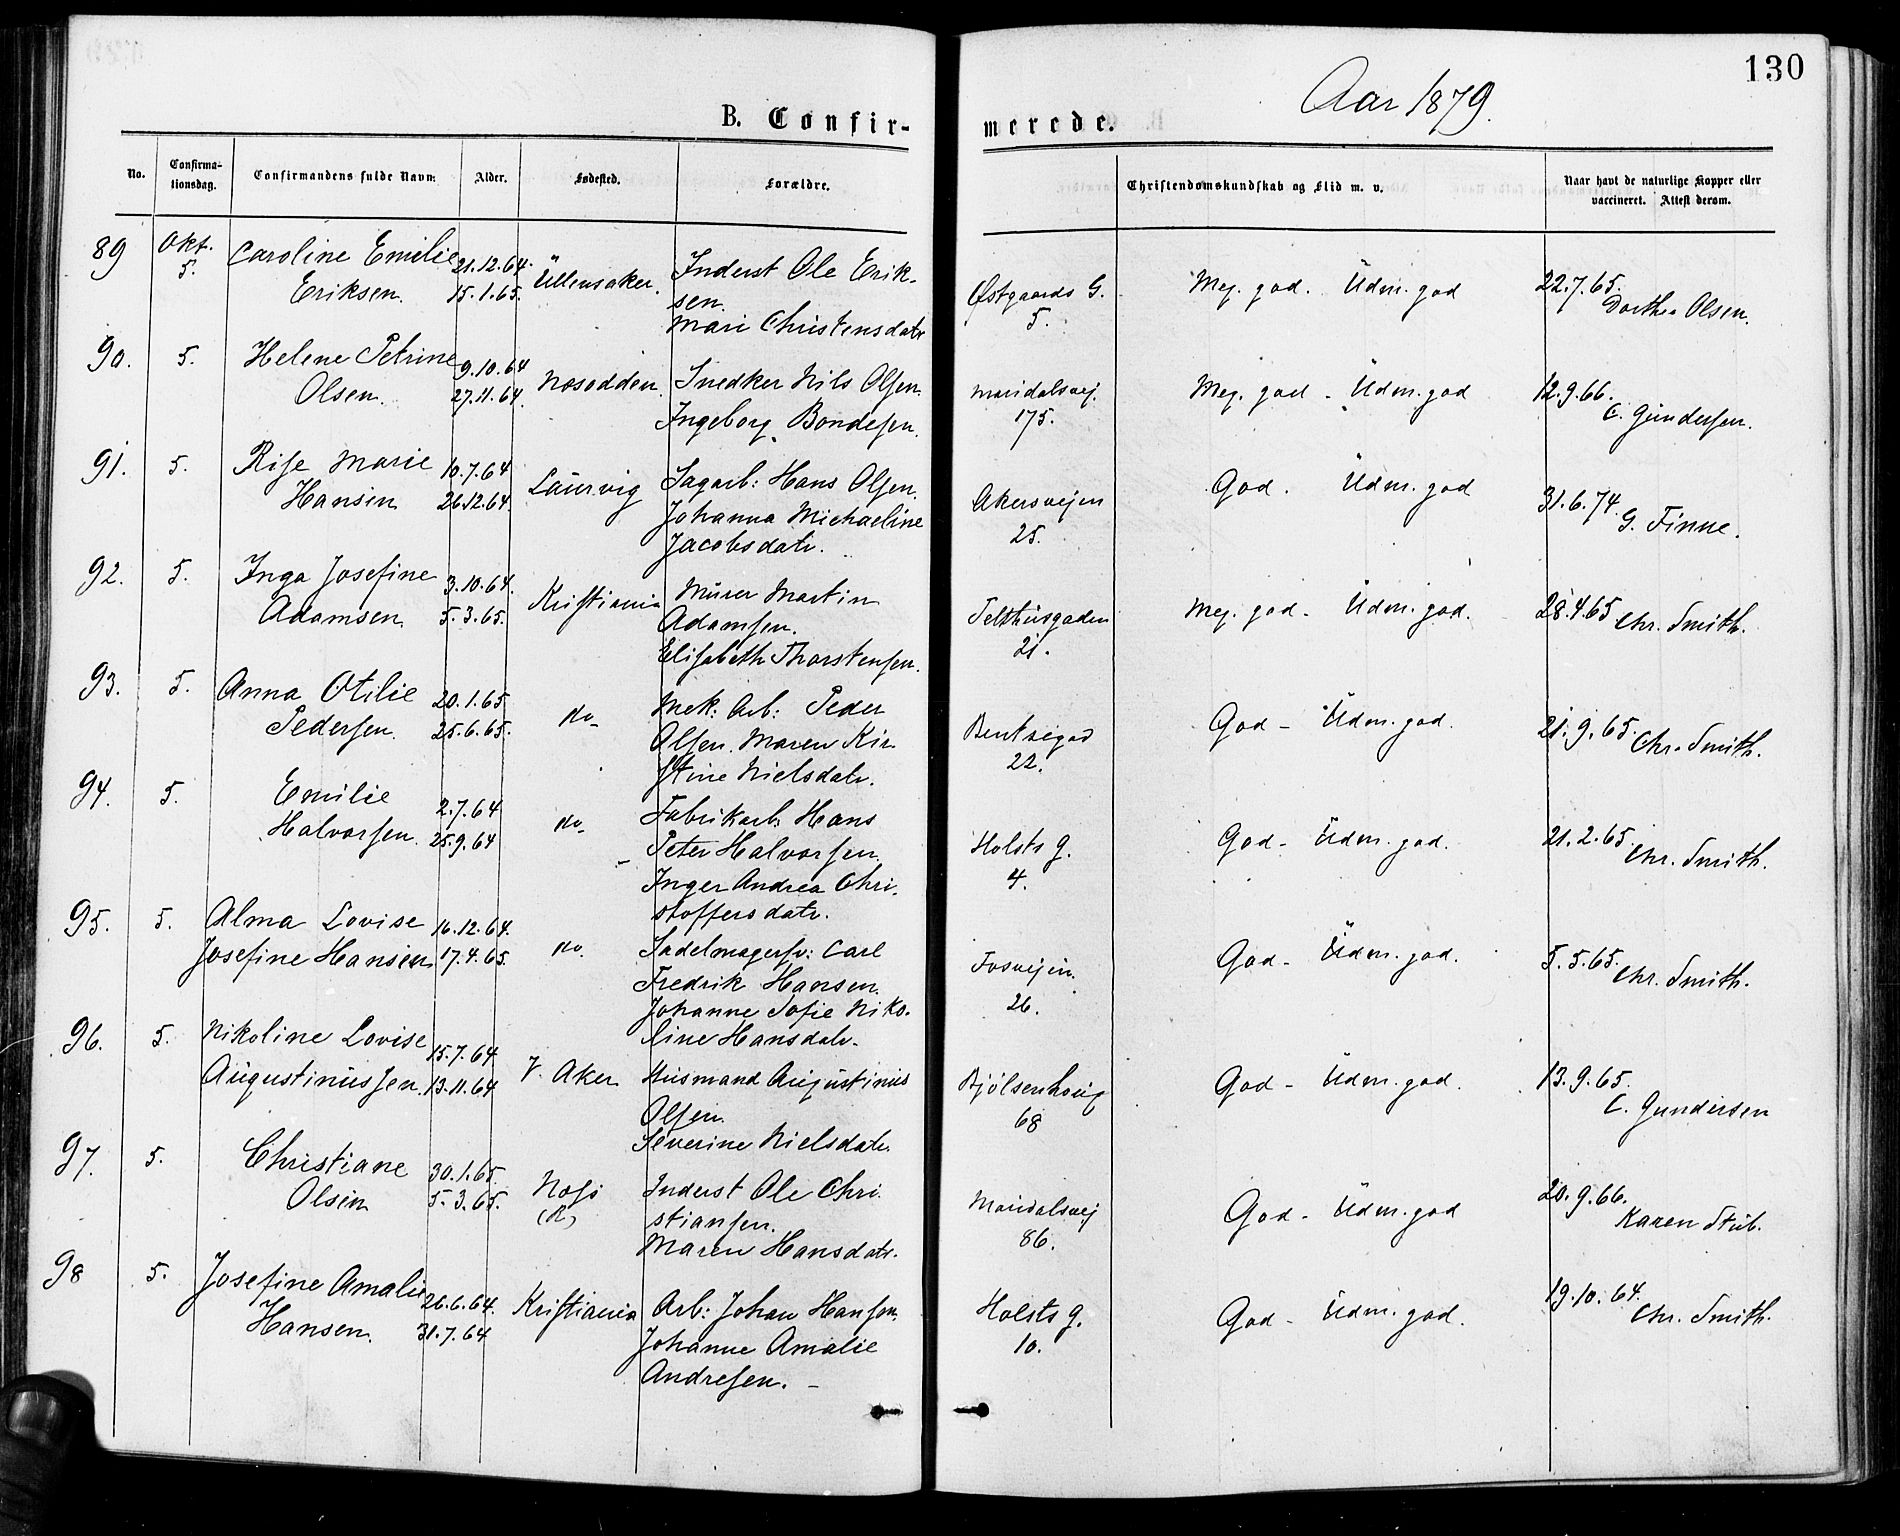 130
Aar 1879.
B. Confir-
merede.
No. Confirma-tionsdag. Confirmandens fulde Navn: Alder. Fødested. Forældre. Christendomskundskab og Flid m. v. Naar havt de naturlige Kopper eller vaccineret. Attest derom.
89 Okt. 5. Caroline Emilie 21.12.64. Ullensaker. Inderst Ole Erik-
Eriksen. 15.1.65. sen.
Mari Christensdatr
Østgaards G. 5. Meg. god. Udm. god 22.7.65. Dorthea Olsen.
90. 5. Helene Petrine 9.10.64 Nesodden. Snedker Nils Olsen.
Olsen. 27.11.64. Ingeborg Bondesen.
Maridalsvej. 175. Meg. god - Udm. god 12.9.66. C. Gundersen.
91. 5. Rise Marie 10.7.64 Laurvig Sagarb: Hans Olsen.
Hansen 26.12.64. Johanna Michaeline
Jacobsdatr.
Akersvejen 25. God. Udm. god 31.6.74. G. Finne.
92. 5. Inga Josefine 3.10.64. Kristiania Murer Martin
Adamsen. 5.3.65. Adamsen.
Elisabeth Thorstensen.
Telthusgaden 21. Meg. god - Udm. god. 28.4.65 Chr. Smith.
93. 5. Anna Otilie 20.1.65 do- Mek: Arb: Peder
Pedersen. 25.6.65. Olsen. Maren Kir-
stine Nielsdatr.
Bentsegad 22. God - Udm. god. 21.9.65. Chr. Smith.
94. 5. Emilie 2.7.64 do- Fabrikarb: Hans
Halvorsen. 25.9.64 Peter Halvorsen.
Inger Andrea Chri-
stoffersdatr.
Holsts g. 4. God - Udm. god. 21.2.65. Chr. Smith.
95. 5. Alma Lovise 16.12.64. do. Sadelmagersv: Carl
Josefine Hansen 17.4.65. Fredrik Hansen.
Johanne Sofie Niko-
line Hansdatr.
Fosvejen. 26. God - Udm. god. 5.5.65. Chr. Smith.
96. 5. Nikoline Lovise 15.7.64 V. Aker Husmand Augustinus
Augustinussen. 13.11.64 Olsen.
Severine Nielsdatr.
Bjølsenhoug 68 God - Udm. god. 13.9.65. C. Gundersen
97. 5. Christiane 30.1.65. Næs Inderst Ole Chri-
Olsen 5.3.65. (R) stiansen.
Maren Hansdatr.
Maridalsvej 86. God - Udm. god 20.9.66. Karen Stub.
98 5. Josefine Amalie 26.6.64. Kristiania Arb: Johan Hansen.
Hansen. 31.7.64 Johanne Amalie
Andresen. -
Holsts g. 10. God - Udm. god. 19.10.64. Chr. Smith.